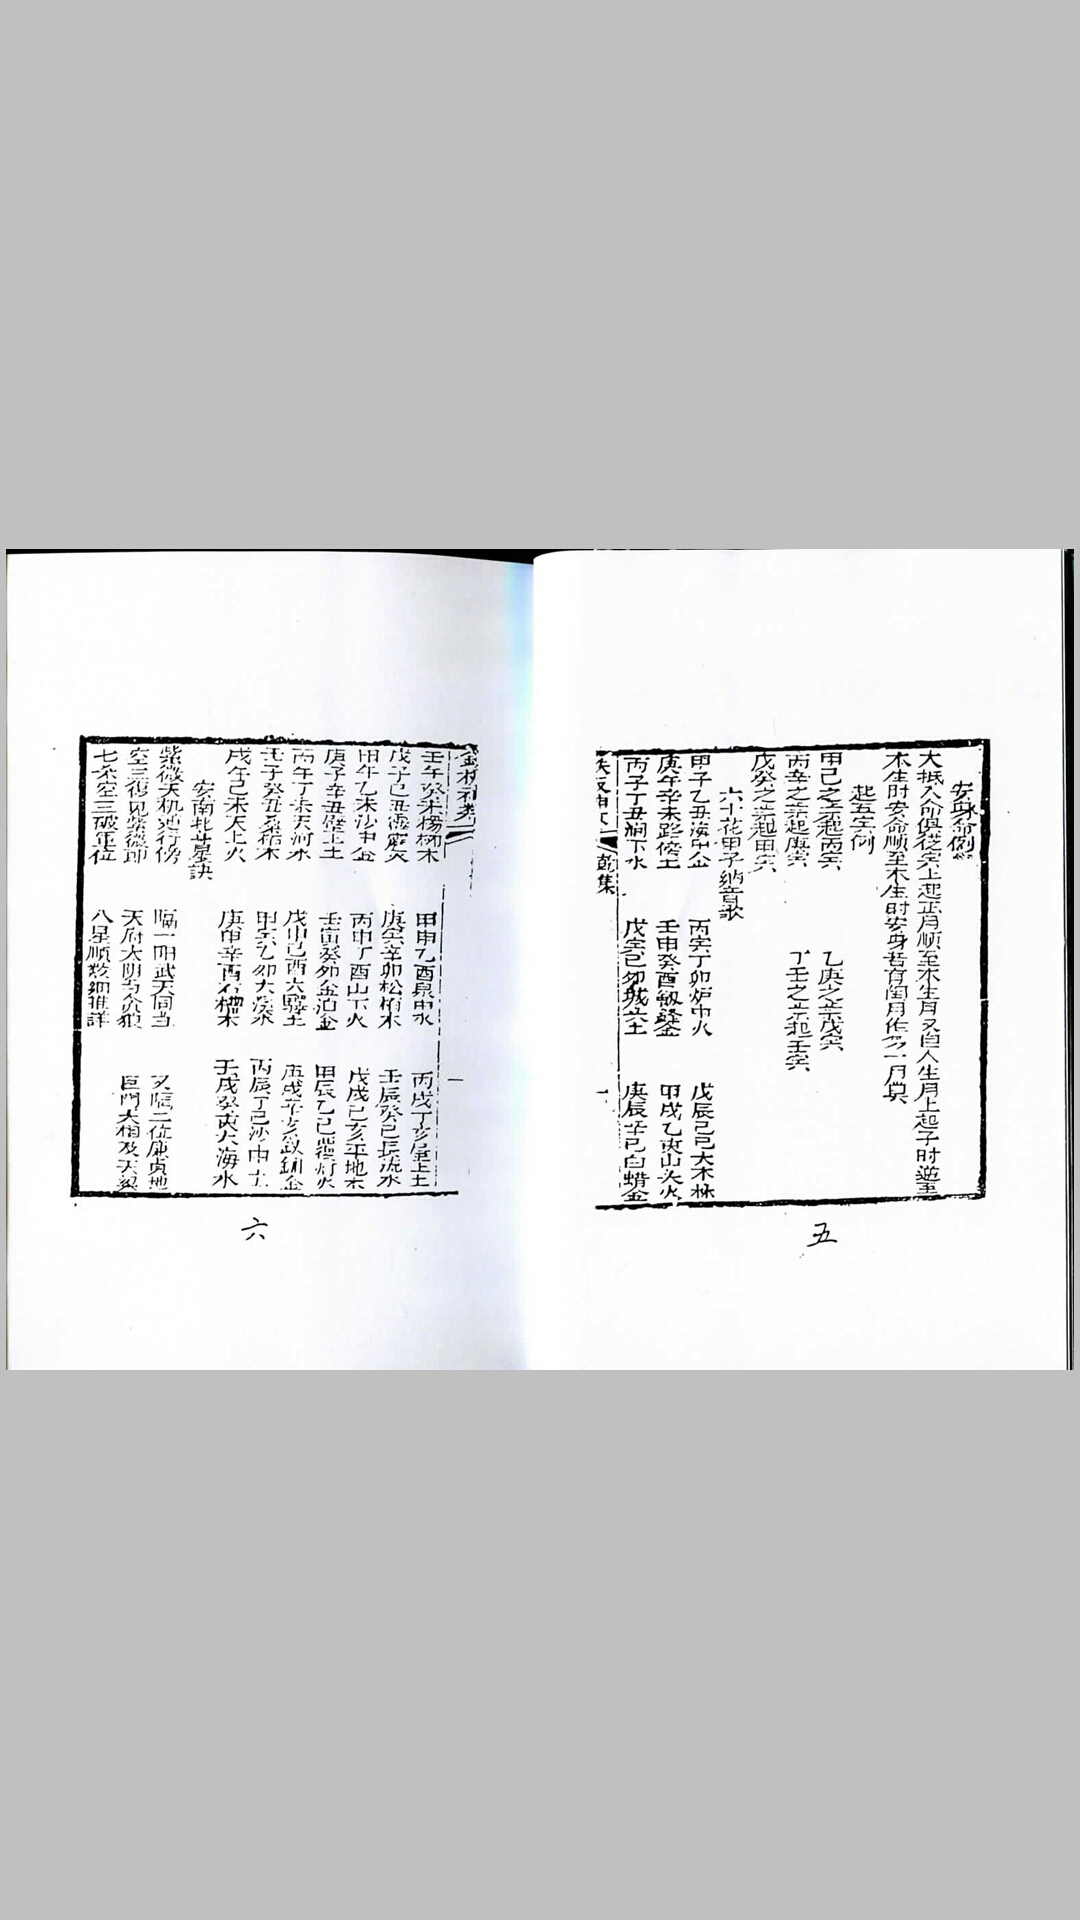 安身命例
大抵人命俱從寅上起正月顺至本生月又自人生月上起子时逆至
本生时安命顺至本生时安身若有闰月作下一月算
起五寅例
甲己之年起丙寅
乙庚之年戊寅
丙辛之年起庚寅
丁壬之年起壬寅
戊癸之年起甲寅
六十花甲子納音歌
甲子乙丑海中金
丙寅丁卯炉中火
戊辰己巳大木林
庚午辛未路傍土
壬申癸酉劔鋒金
甲戌乙亥山头火
丙子丁丑涧下水
戊寅己卯城头土
庚辰辛巳白蜡金
乾集
五
一
壬午癸未楊柳木
甲申乙酉泉中水
丙戌丁亥屋上土
戊子己丑霹靂火
庚寅辛卯松柏木
壬辰癸巳長流水
甲午乙未沙中金
丙申丁酉山下火
戊戌己亥平地木
庚子辛丑壁上土
壬寅癸卯金泊金
甲辰乙巳覆灯火
丙午丁未天河水
戊申己酉大驛土
庚戌辛亥釵釧金
壬子癸丑桑柘木
甲寅乙卯大溪水
丙辰丁巳沙中土
戊午己未天上火
庚申辛酉石榴木
壬戌癸亥大海水
安南北斗星訣
紫微天机逆行傍
隔一阳武天同当
又隔二位廉贞地
空三復见紫微郎
天府太阴与贪狼
巨門天相及天梁
七杀空三破军位
八星順数細推詳
六